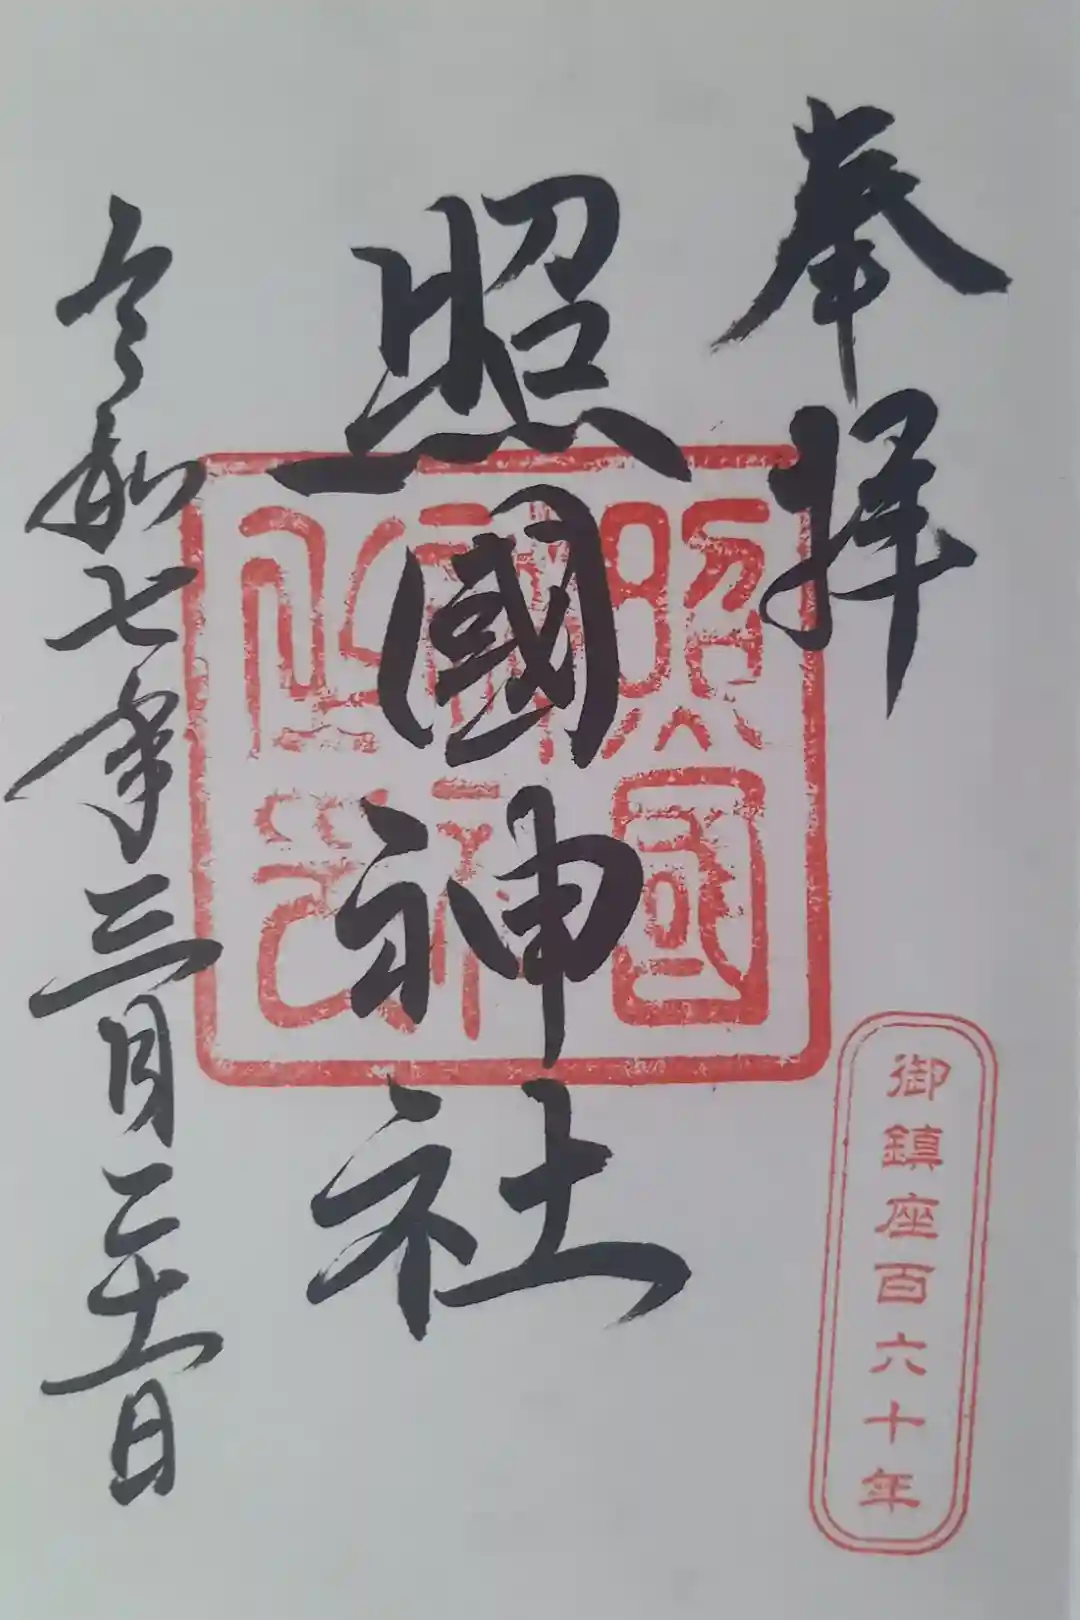 奉拝
御鎮座百六十年
照國神社
照國神社之印
令和七年三月二十一日